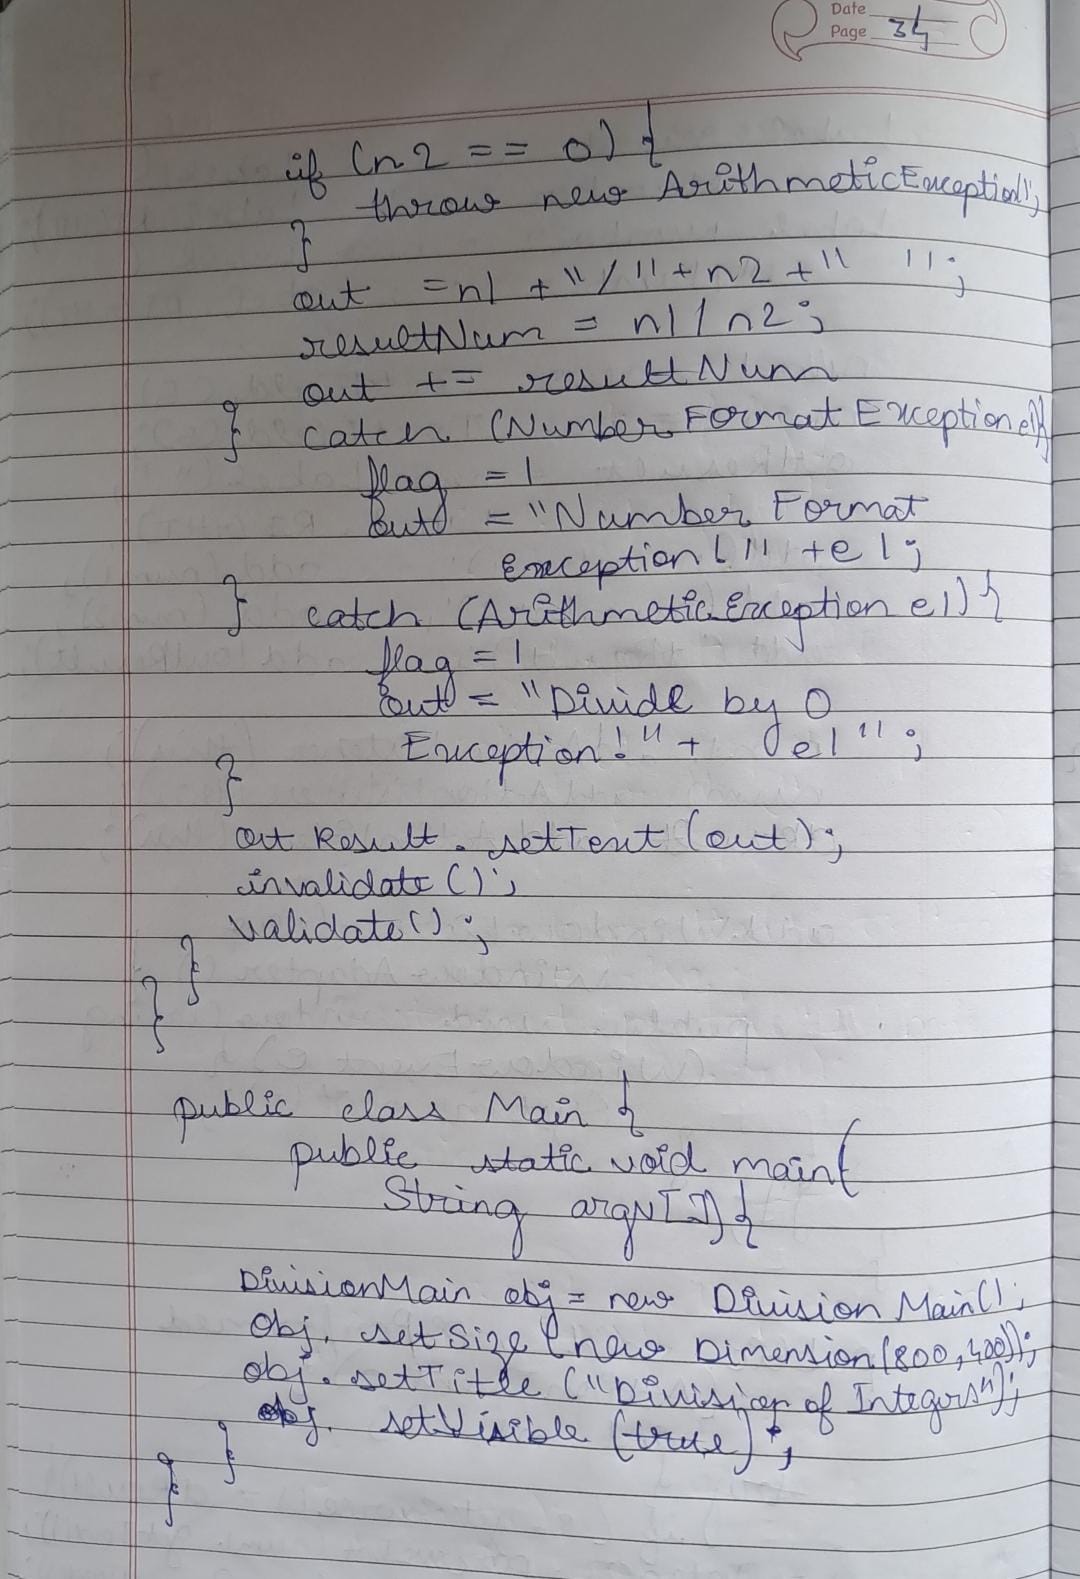 Date
Page 34
if (n2 == 0) {
throw new ArithmeticException();
}
out = n1 + "/" + n2 + " ";
resultNum = n1 / n2;
out += resultNum
} catch (NumberFormatException e1){
flag = 1
out = "Number Format
Exception!" + e1;
} catch (ArithmeticException e1){
flag = 1
out = "Divide by 0
Exception!" + e1";
}
outResult.setText(out);
invalidate();
validate();
}
}
public class Main {
public static void main(
String argv[]){
DivisionMain obj = new DivisionMain();
obj.setSize(new Dimension(800,400));
obj.setTitle("Division of Integers");
obj.setVisible(true);
}
}